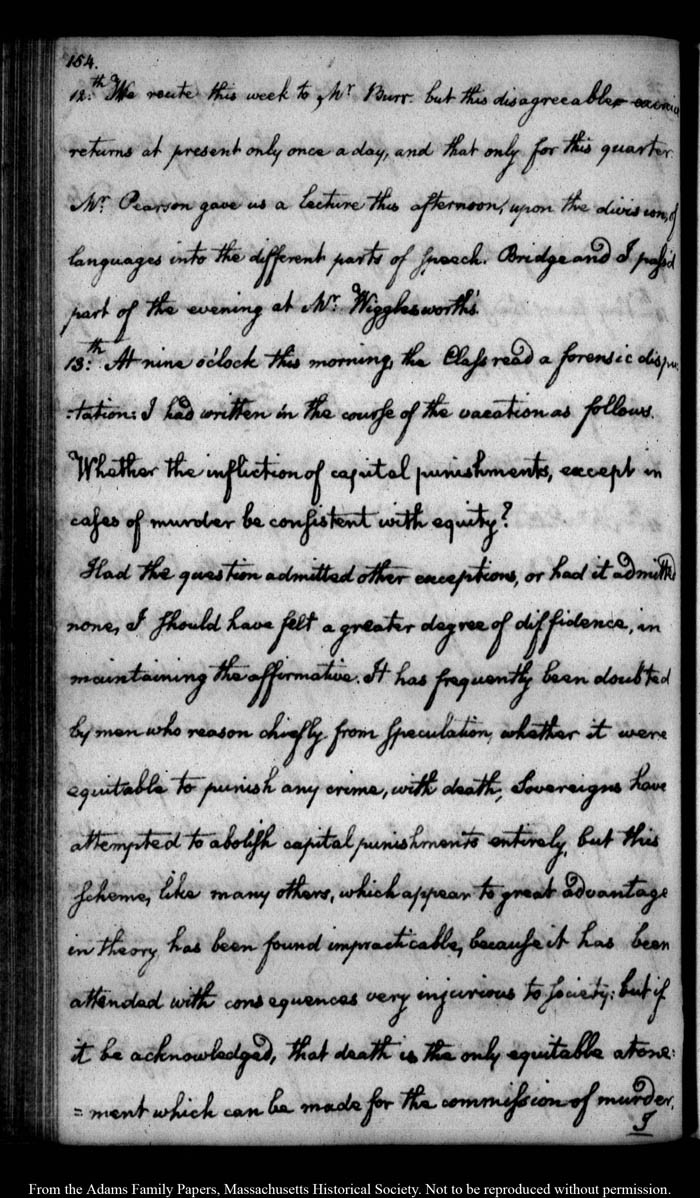 154.
12.th We recite this week to Mr. Burr. but this disagreeable exercise
returns at present only once a day, and that only for this quarter
Mr. Pearson gave us a lecture this afternoon, upon the division, of
languages into the different parts of speech. Bridge and I pass'd
part of the evening at Mr. Wigglesworth's.
13.th At nine o'clock this morning, the Class read a forensic dispu-
:tation: I had written in the course of the vacation as follows.
Whether the infliction of capital punishments, except in
cases of murder be consistent with equity?
Had the question admitted other exceptions, or had it admitted
none, I should have felt a greater degree of diffidence, in
maintaining the affirmative. It has frequently been doubted
by men who reason chiefly from speculation, whether it were
equitable to punish any crime, with death, Sovereigns have
attempted to abolish capital punishments entirely, but this
scheme, like many others, which appear to great advantage
in theory has been found impracticable, because it has been
attended with consequences very injurious to society: but if
it be acknowledged, that death is the only equitable atone:
=ment which can be made for the commission of murder,
I
From the Adams Family Papers, Massachusetts Historical Society. Not to be reproduced without permission.